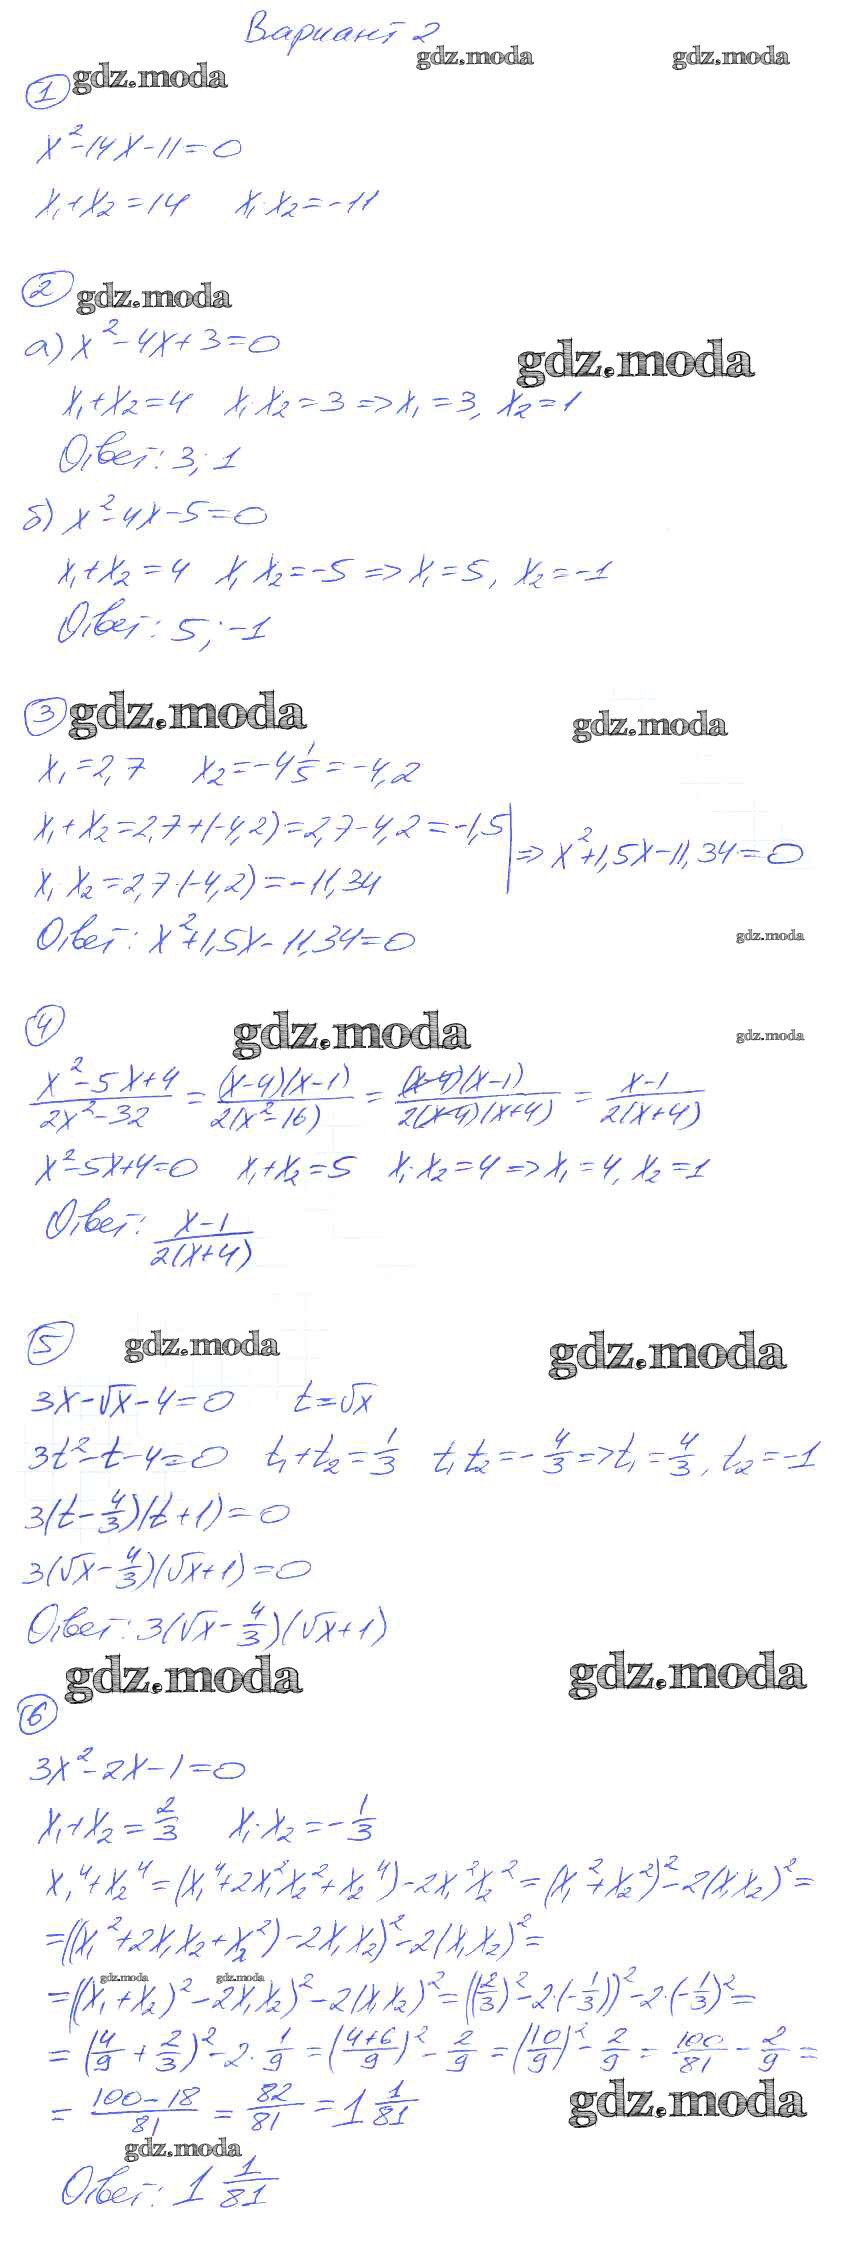 Вариант 2
gdz.moda gdz.moda
1 gdz.moda
x²-14x-11=0
x₁+x₂=14 x₁·x₂=-11
2 gdz.moda
а) x²-4x+3=0
gdz.moda
x₁+x₂=4 x₁·x₂=3=>x₁=3, x₂=1
Ответ: 3; 1
б) x²-4x-5=0
x₁+x₂=4 x₁x₂=-5=>x₁=5, x₂=-1
Ответ: 5; -1
3 gdz.moda gdz.moda
x₁=2,7 x₂=-4 1/5=-4,2
x₁+x₂=2,7+(-4,2)=2,7-4,2=-1,5
=> x²+1,5x-11,34=0
x₁·x₂=2,7·(-4,2)=-11,34
Ответ: x²+1,5x-11,34=0 gdz.moda
4 gdz.moda gdz.moda
(x²-5x+4)/(2x²-32) = ((x-4)(x-1))/(2(x²-16)) = ((x-4)(x-1))/(2(x-4)(x+4)) = (x-1)/(2(x+4))
x²-5x+4=0 x₁+x₂=5 x₁·x₂=4=>x₁=4, x₂=1
Ответ: (x-1)/(2(x+4))
5 gdz.moda gdz.moda
3x-√x-4=0 t=√x
3t²-t-4=0 t₁+t₂=1/3 t₁t₂=-4/3=>t₁=4/3, t₂=-1
3(t-4/3)(t+1)=0
3(√x-4/3)(√x+1)=0
Ответ: 3(√x-4/3)(√x+1)
gdz.moda gdz.moda
6
3x²-2x-1=0
x₁+x₂=2/3 x₁·x₂=-1/3
x₁⁴+x₂⁴=(x₁⁴+2x₁²x₂²+x₂⁴)-2x₁²x₂²=(x₁²+x₂²)²-2(x₁x₂)²=
=((x₁²+2x₁x₂+x₂²)-2x₁x₂)²-2(x₁x₂)²=
gdz.moda gdz.moda
=((x₁+x₂)²-2x₁x₂)²-2(x₁x₂)²=((2/3)²-2·(-1/3))²-2·(-1/3)²=
=(4/9+2/3)²-2·1/9=((4+6)/9)²-2/9=(10/9)²-2/9=100/81-2/9=
=(100-18)/81=82/81=1 1/81 gdz.moda
gdz.moda
Ответ: 1 1/81